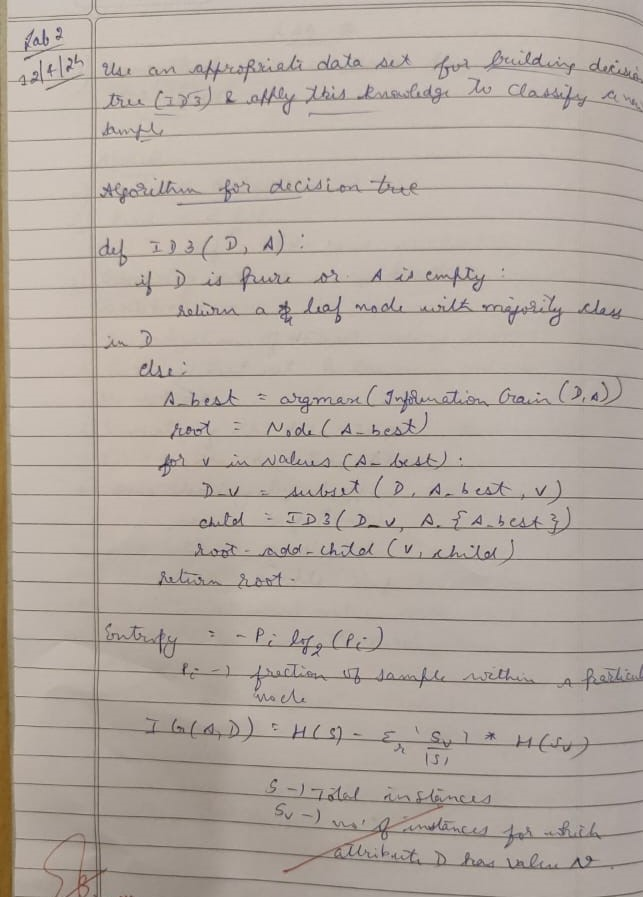 Lab 2
12/4/24
Use an appropriate data set for building decision
tree (ID3) & apply this knowledge to classify a new
sample
Algorithm for decision tree
def ID3(D, A):
if D is pure or A is empty:
return a leaf node with majority class
in D
else:
A_best = argmax(Information Gain(D,A))
root = Node(A-best)
for v in values (A-best):
D_v = subset (D, A_best, v)
child = ID3(D_v, A. {A_best})
root.add-child (v, child)
return root.
Entropy = -Pi log2(Pi)
Pi -> fraction of sample within a particul
node
IG(A,D) = H(S) - Σv |Sv|/|S| * H(Sv)
S -> Total instances
Sv -> no. of instances for which
attribute D has value v.